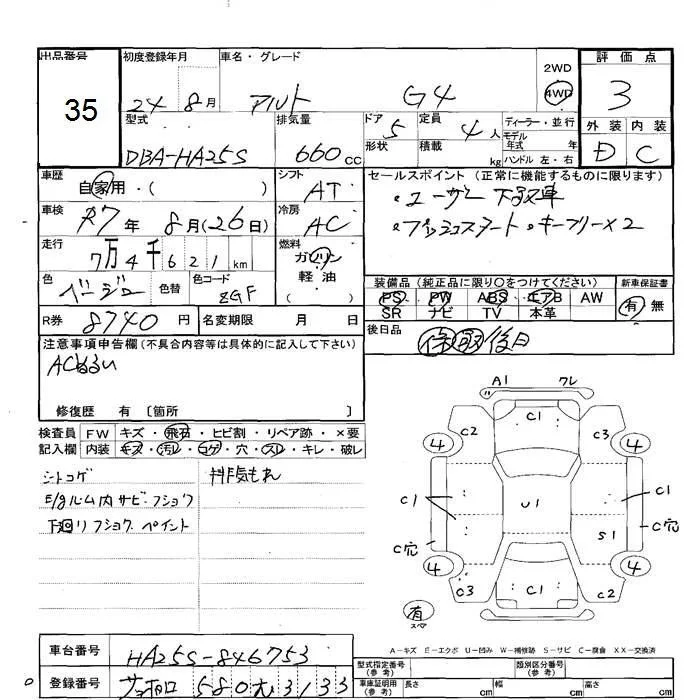 出品番号 35
初度登録年月 24 8月
車名・グレード アルト G4
2WD
4WD
評価点 3
型式 DBA-HA25S
排気量 660cc
ドア 5
形状
定員 4人
積載 kg
ディーラー・並行
モデル
年式 年
ハンドル 左・右
外装 内装
D C
車歴 自家用・( )
シフト AT
車検 R7年 8月(26日)
冷房 AC
走行 7万4千621km
燃料 ガソリン
軽油
色 ベージュ 色替
色コード ZGF
R券 8740円 名変期限 月 日
セールスポイント(正常に機能するものに限ります)
・ユーザー下取車
・プッシュスタート・キーフリー×2
装備品(純正品に限り○をつけてください)
新車保証書
PS PW ABS エアB AW
SR ナビ TV 本革
有 無
後日品
保 取 後日
注意事項申告欄(不具合内容等は具体的に記入して下さい)
ACぬるい
修復歴 有 〔箇所 〕
検査員 FW キズ・飛石・ヒビ割・リペア跡・×要
記入欄 内装 キズ・汚レ・コゲ・穴・スレ・キレ・破レ
シートコゲ
E/gルーム内サビ・フショク
下廻りフショク ペイント
排気もれ
A1 ワレ
C1
C2 C3
4 4
C1 U1 C1
C穴 S1 C穴
4 4
C3 C1 C2
有
スペア
A-キズ E-エクボ U-凹み W-補修跡 S-サビ C-腐食 XX-交換済
車台番号 HA25S-846753
登録番号 サッポロ 580 む 3133
型式指定番号
(参考)
類別区分番号
(参考)
車庫証明用
(参考)
長さ cm 幅 cm 高さ cm